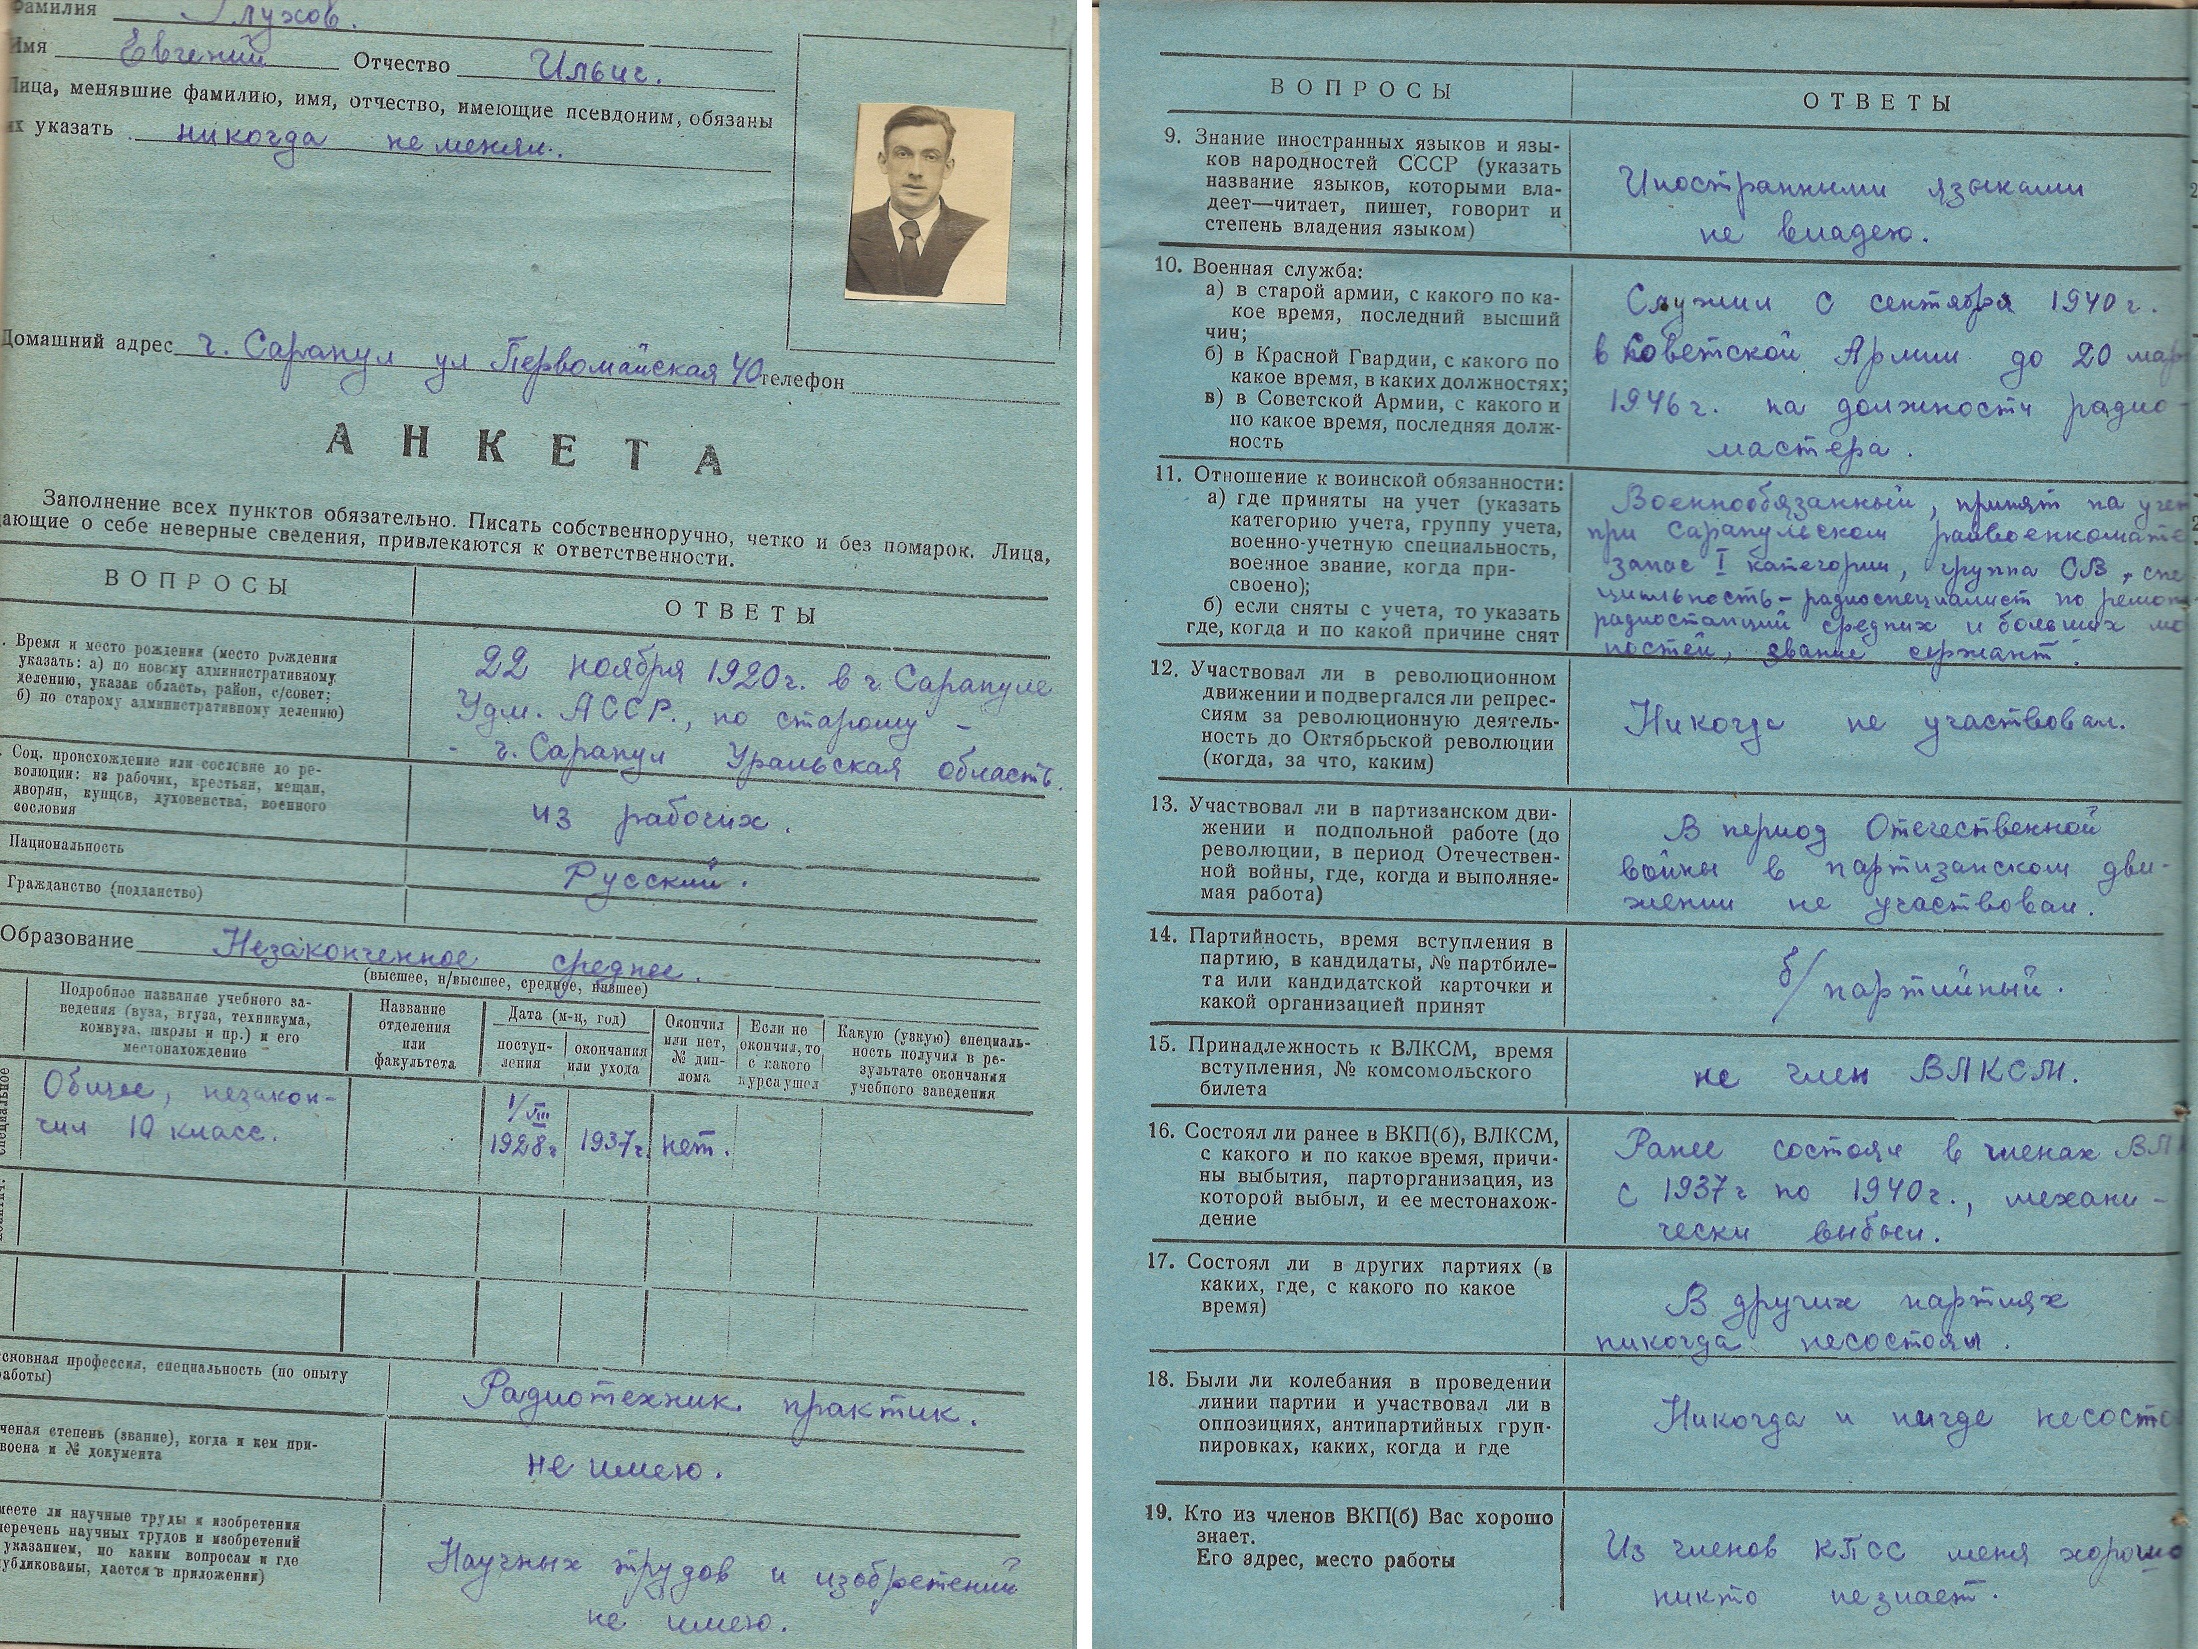 Фамилия Глухов.
Имя Евгений Отчество Ильич.
Лица, менявшие фамилию, имя, отчество, имеющие псевдоним, обязаны
их указать никогда не менял.
Домашний адрес г. Сарапул ул Первомайская 40 телефон
АНКЕТА
Заполнение всех пунктов обязательно. Писать собственноручно, четко и без помарок. Лица,
дающие о себе неверные сведения, привлекаются к ответственности.
ВОПРОСЫ
ОТВЕТЫ
Время и место рождения (место рождения
указать: а) по новому административному
делению, указав область, район, с/совет;
б) по старому административному делению)
22 ноября 1920 г. в г. Сарапуле
Удм. АССР., по старому -
- г. Сарапул Уральская область.
Соц. происхождение или сословие до ре-
волюции: из рабочих, крестьян, мещан,
дворян, купцов, духовенства, военного
сословия
из рабочих.
Национальность
Русский.
Гражданство (подданство)
Образование Незаконченное среднее.
(высшее, н/высшее, среднее, низшее)
Подробное название учебного за-
ведения (вуза, втуза, техникума,
комвуза, школы и пр.) и его
местонахождение
Название
отделения
или
факультета
Дата (м-ц, год)
поступ-
ления
окончания
или ухода
Окончил
или нет,
№ дип-
лома
Если не
окончил, то
с какого
курса ушел
Какую (узкую) специаль-
ность получил в ре-
зультате окончания
учебного заведения
Общее, незакон-
чил 10 класс.
1/VIII
1928 г
1937 г.
нет.
сновная профессия, специальность (по опыту
работы)
Радиотехник практик.
ченая степень (звание), когда и кем при-
своена и № документа
не имею.
меете ли научные труды и изобретения
перечень научных трудов и изобретений
указанием, по каким вопросам и где
публикованы, дается в приложении)
Научных трудов и изобретений
не имею.
ВОПРОСЫ
ОТВЕТЫ
9. Знание иностранных языков и язы-
ков народностей СССР (указать
название языков, которыми вла-
деет—читает, пишет, говорит и
степень владения языком)
Иностранными языками
не владею.
10. Военная служба:
а) в старой армии, с какого по ка-
кое время, последний высший
чин;
б) в Красной Гвардии, с какого по
какое время, в каких должностях;
в) в Советской Армии, с какого и
по какое время, последняя долж-
ность
Служил с сентября 1940 г.
в Советской Армии до 20 мар
1946 г. на должности радио-
мастера.
11. Отношение к воинской обязанности:
а) где приняты на учет (указать
категорию учета, группу учета,
военно-учетную специальность,
военное звание, когда при-
своено);
б) если сняты с учета, то указать
где, когда и по какой причине снят
Военнообязанный, принят на учет
при Сарапульском райвоенкомате
запас I категории, группа СВ, спе
циальность - радиоспециалист по ремон
радиостанций средних и больших мо
ностей, звание сержант.
12. Участвовал ли в революционном
движении и подвергался ли репрес-
сиям за революционную деятель-
ность до Октябрьской революции
(когда, за что, каким)
Никогда не участвовал.
13. Участвовал ли в партизанском дви-
жении и подпольной работе (до
революции, в период Отечествен-
ной войны, где, когда и выполняе-
мая работа)
В период Отечественной
войны в партизанском дви-
жении не участвовал.
14. Партийность, время вступления в
партию, в кандидаты, № партбиле-
та или кандидатской карточки и
какой организацией принят
б/партийный.
15. Принадлежность к ВЛКСМ, время
вступления, № комсомольского
билета
не член ВЛКСМ.
16. Состоял ли ранее в ВКП(б), ВЛКСМ,
с какого и по какое время, причи-
ны выбытия, парторганизация, из
которой выбыл, и ее местонахож-
дение
Ранее состоял в членах ВЛ
с 1937 г по 1940 г., механи-
чески выбыл.
17. Состоял ли в других партиях (в
каких, где, с какого по какое
время)
В других партиях
никогда несостоял.
18. Были ли колебания в проведении
линии партии и участвовал ли в
оппозициях, антипартийных груп-
пировках, каких, когда и где
Никогда и нигде несосто
19. Кто из членов ВКП(б) Вас хорошо
знает.
Его адрес, место работы
Из членов КПСС меня хорошо
никто незнает.